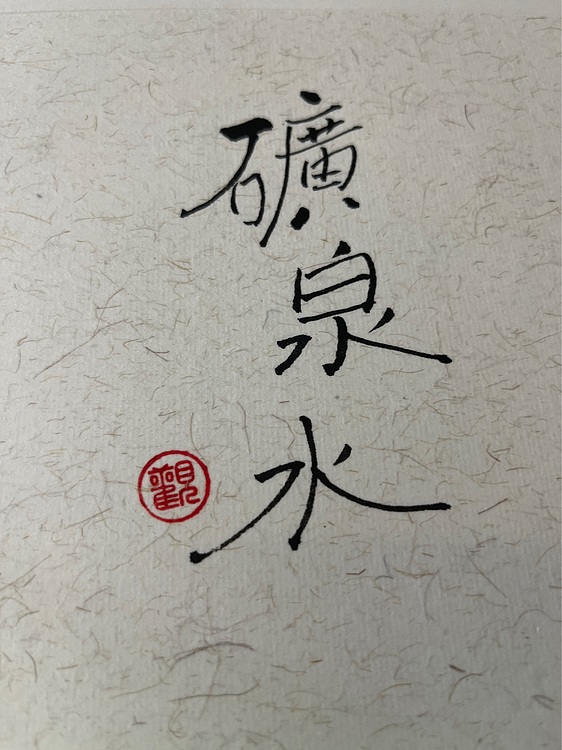 礦泉水
觀